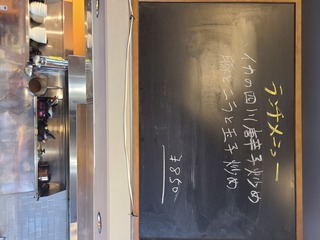 ランチメニュー
イカの四川唐辛子炒め
豚とニラと玉子炒め
¥850